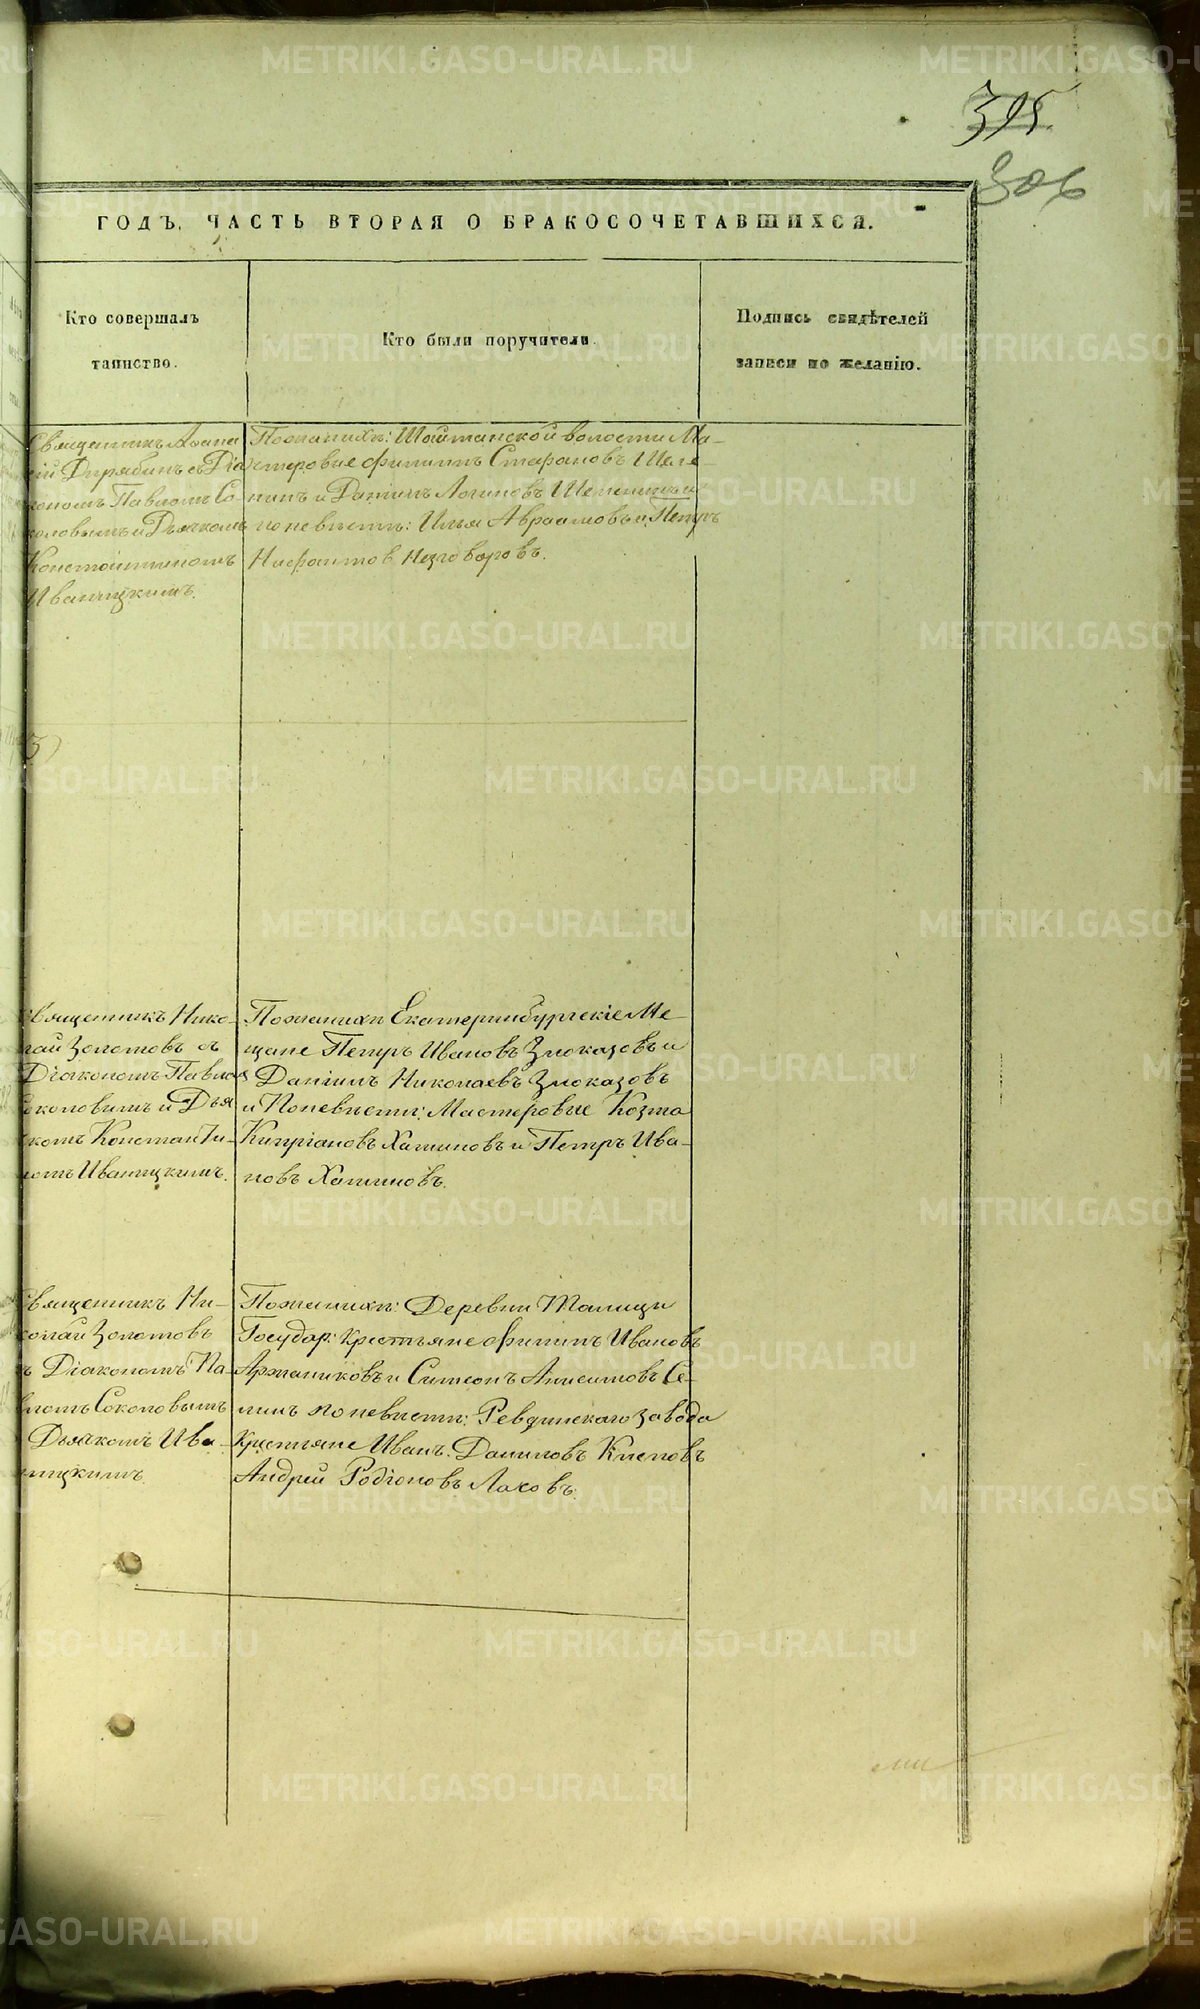 395
306
ГОДЪ. ЧАСТЬ ВТОРАЯ О БРАКОСОЧЕТАВШИХСЯ.
Кто совершалъ
таинство.
Кто были поручители.
Подпись свидѣтелей
записи по желанію.
Священникъ
съ Діа
кономъ Павломъ Со
коловымъ и Дьячкомъ
Константиномъ
Иваницкимъ.
По женихѣ: Шайтанской волости Ма-
стеровые Филиппъ Стефановъ
и Данiилъ Логиновъ и
по невѣстѣ: Илья Авраамовъ и Петръ
Нифантов Незговоровъ.
3)
Священникъ Нико-
лай Золотовъ съ
Діакономъ Павлом
Соколовымъ и Дья
комъ Константи-
номъ Иваницкимъ.
По женихѣ Екатеринбургскіе Ме-
щане Петръ Ивановъ Злоказовъ и
Даніилъ Николаевъ Злоказовъ
и По невѣстѣ: Мастеровые Козма
Кипріановъ Хаминовъ и Петръ Ива-
новъ Хаминовъ.
Священникъ Ни-
колай Золотовъ
съ Діакономъ Па-
вломъ Соколовымъ
Дьячкомъ Ива-
ницкимъ.
По женихѣ: Деревни Талицы
Государ: Крестьяне Филиппъ Ивановъ
Аржанниковъ и Симеонъ Анисимовъ Се-
линъ по невѣстѣ: Ревдинскаго завода
Крестьяне Иванъ Даниловъ
Андрей Родіоновъ
METRIKI.GASO-URAL.RU